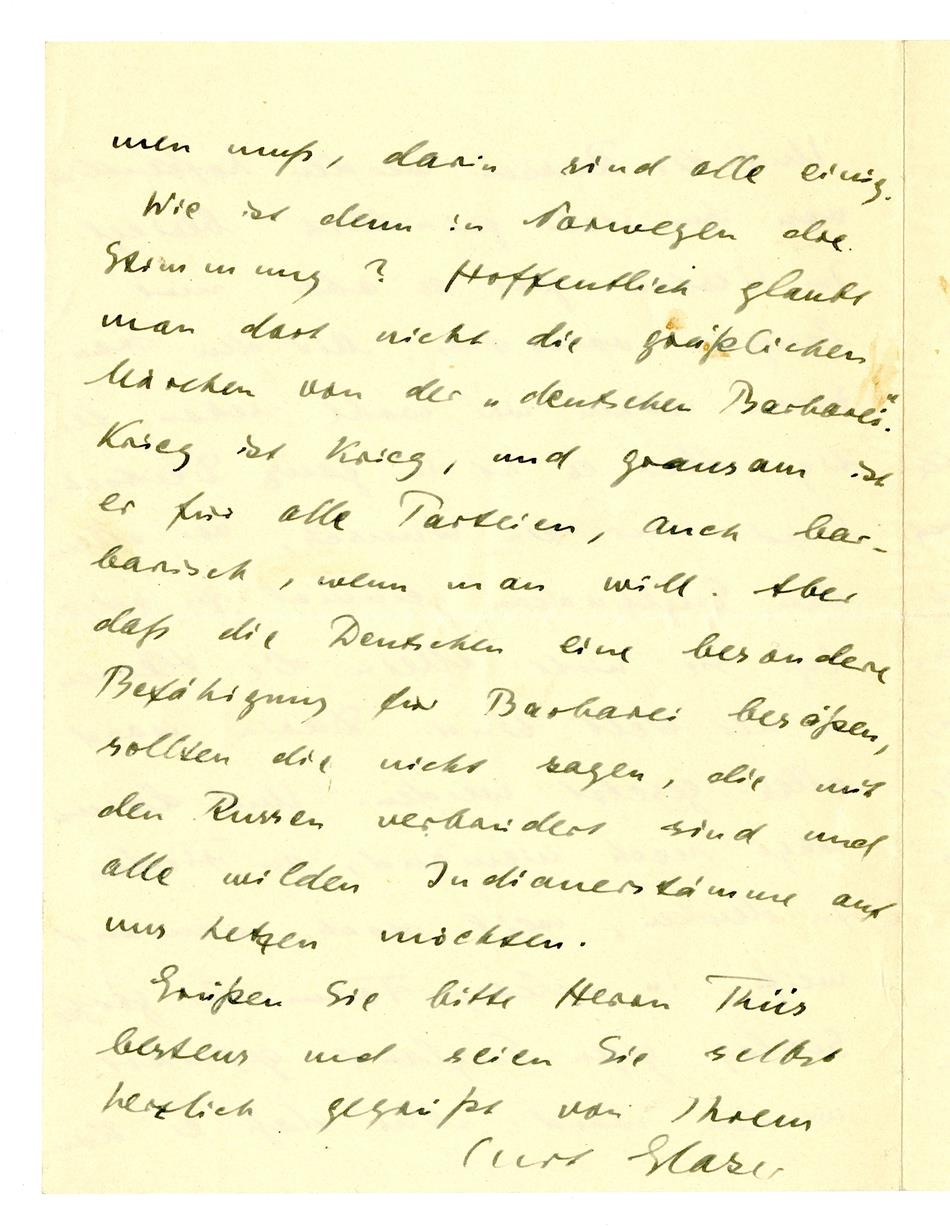 men muß, darin sind alle einig.
Wie ist denn in Norwegen die
Stimmung? Hoffentlich glaubt
man dort nicht die gräßlichen
Märchen von der „deutschen Barbarei“.
Krieg ist Krieg, und grausam ist
er für alle Parteien, auch bar-
barisch, wenn man will. Aber
daß die Deutschen eine besondere
Befähigung für Barbarei besäßen,
sollten die nicht sagen, die mit
den Russen verbündert sind und
alle wilden Indianerstämme auf
uns hetzen möchten.
Grüßen Sie bitte Herrn Thiis
bestens und seien Sie selbst
herzlich gegrüßt von Ihrem
Curt Glaser